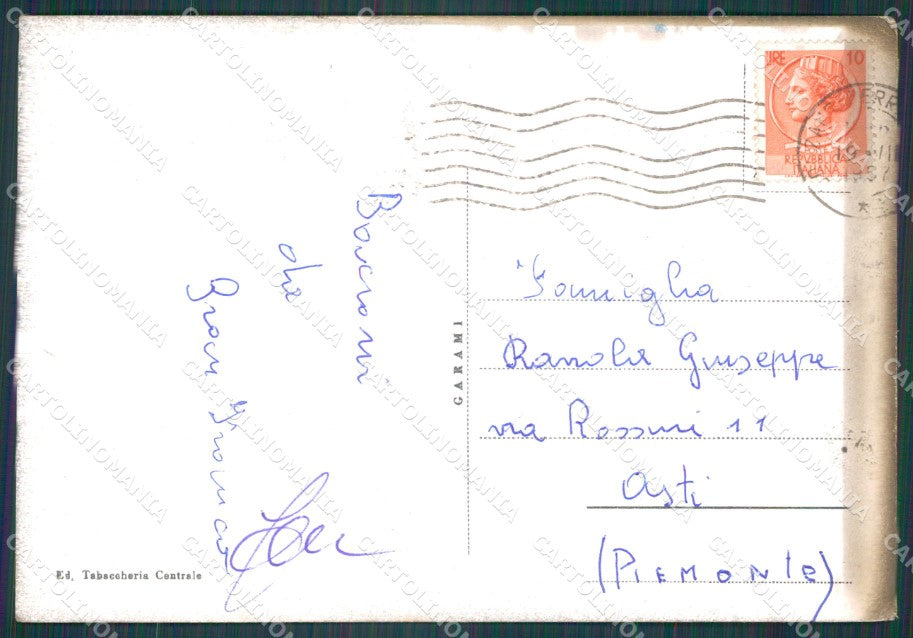 LIRE 10
POSTE
REPVBBLICA
ITALIANA
Bacioni
da
Gian Franco
Famiglia
Giuseppe
via Rossini 11
Asti
(PIEMONTE)
GARAMI
Ed. Tabaccheria Centrale
CARTOLINOMANIA